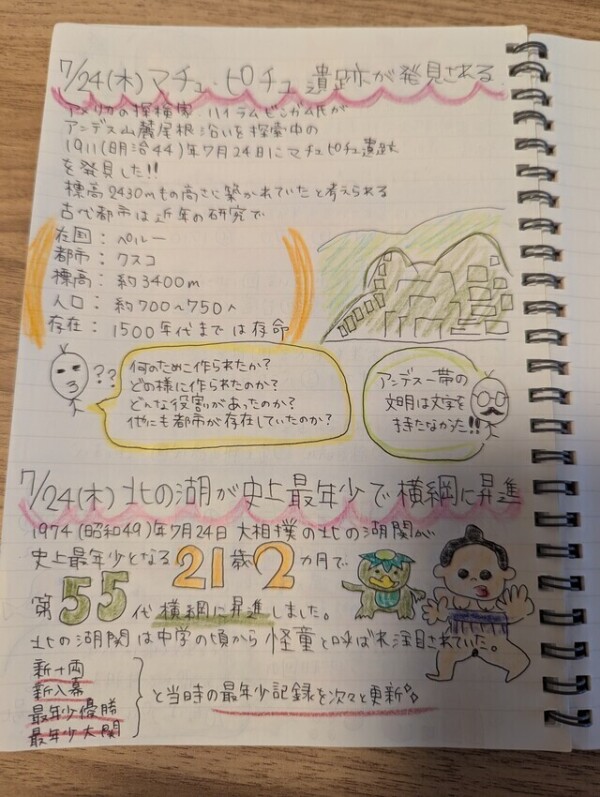 7/24(木)マチュ・ピチュ遺跡が発見される
アメリカの探検家 ハイラムビンガム氏が
アンデス山麓尾根沿いを探索中の
1911(明治44)年7月24日にマチュピチュ遺跡
を発見した!!
標高2430mもの高さに築かれていたと考えられる
古代都市は近年の研究で
在国:ペルー
都市:クスコ
標高:約3400m
人口:約700〜750人
存在:1500年代までは存命
??
何のために作られたか?
どの様に作られたのか?
どんな役割があったのか?
他にも都市が存在していたのか?
アンデス一帯の
文明は文字を
持たなかった!!
7/24(木)北の湖が史上最年少で横綱に昇進
1974(昭和49)年7月24日 大相撲の北の湖関が
史上最年少となる21歳2カ月で
第55代横綱に昇進しました。
北の湖関は中学の頃から怪童と呼ばれ注目されていた。
新十両
新入幕
最年少優勝
最年少大関
と当時の最年少記録を次々と更新